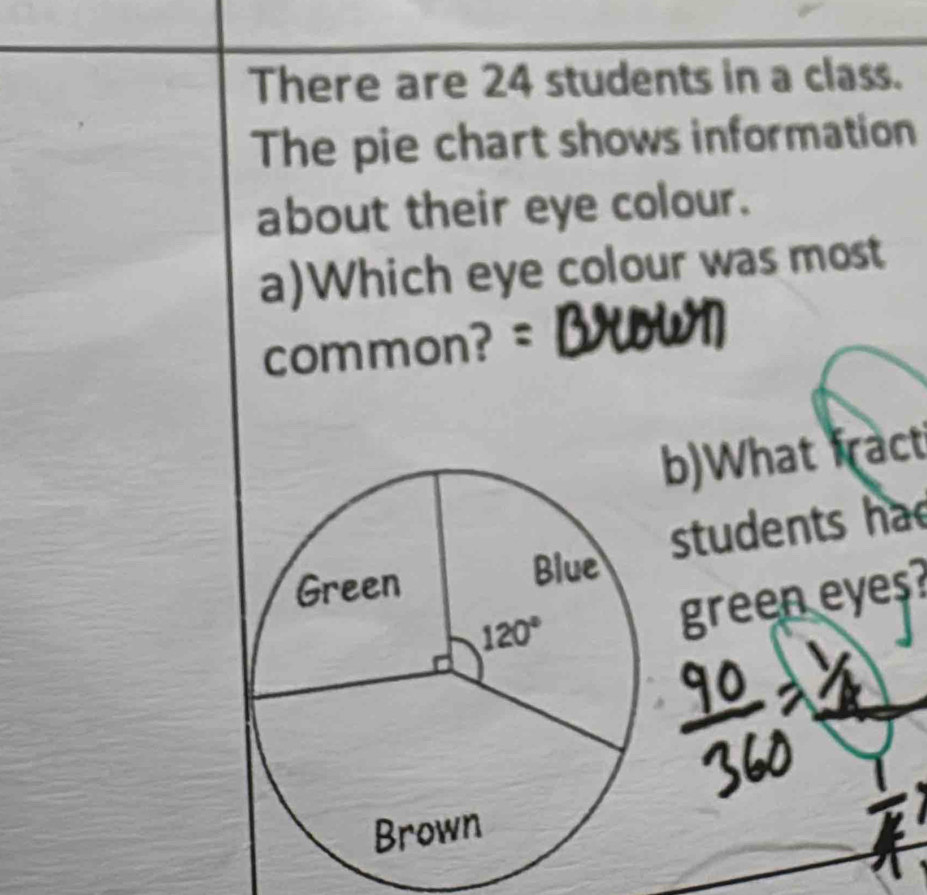 There are 24 students in a class.
The pie chart shows information
about their eye colour.
a)Which eye colour was most
common? = Brown
b)What fracti
students had
green eyes?
Green
Blue
120°
Brown
90
360
=
1